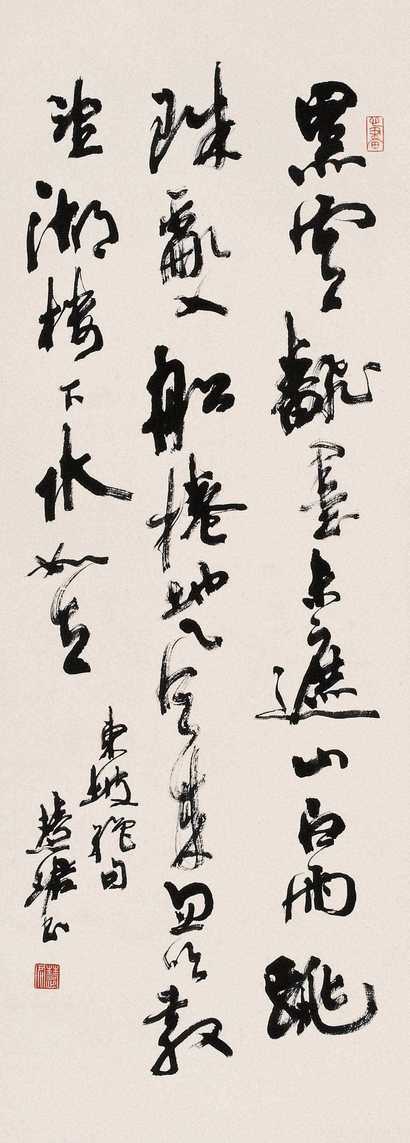 黑雲飜墨未遮山白雨跳
珠亂入船捲地風來忽吹散
望湖樓下水如天
東坡絕句
慧珺书